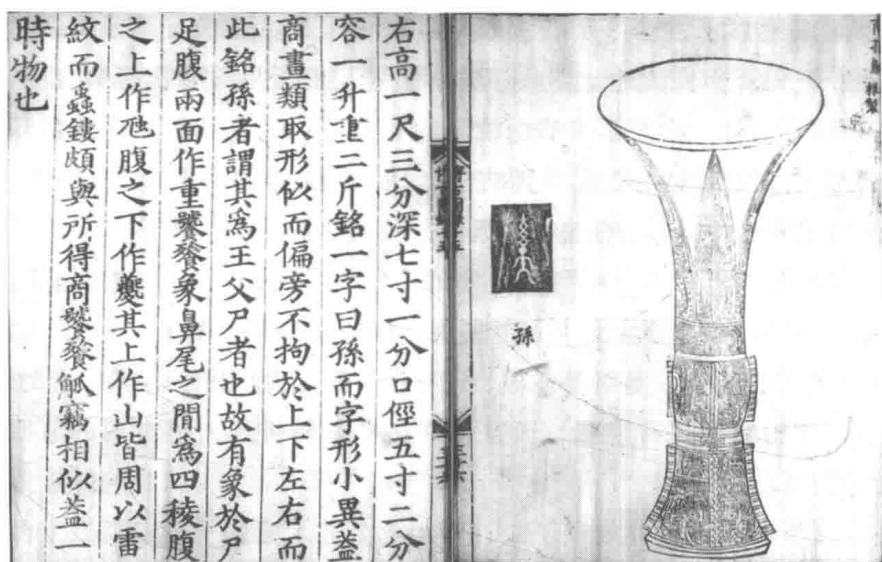 孫
右高一尺三分深七寸一分口俓五寸二分
容一升重二斤銘一字曰孫而字形小異葢
商畫類取形似而偏旁不拘於上下左右而
此銘孫者謂其爲王父尸者也故有象於尸
足腹兩面作重饕餮象鼻尾之閒爲四稜腹
之上作虺腹之下作夔其上作山皆周以雷
紋而蟸鏤頗與所得商饕餮觚竊相似葢一
時物也